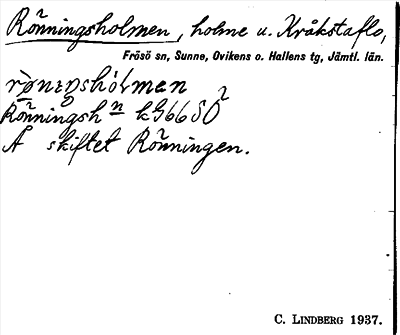 Rönningsholmen, holme u. Kråkstaflo,
Frösö sn, Sunne, Ovikens o. Hallens tg, Jämtl. län.
Rönningsh n kG66SÖ
Å skiftet Rönningen.
C. LINDBERG 1937.